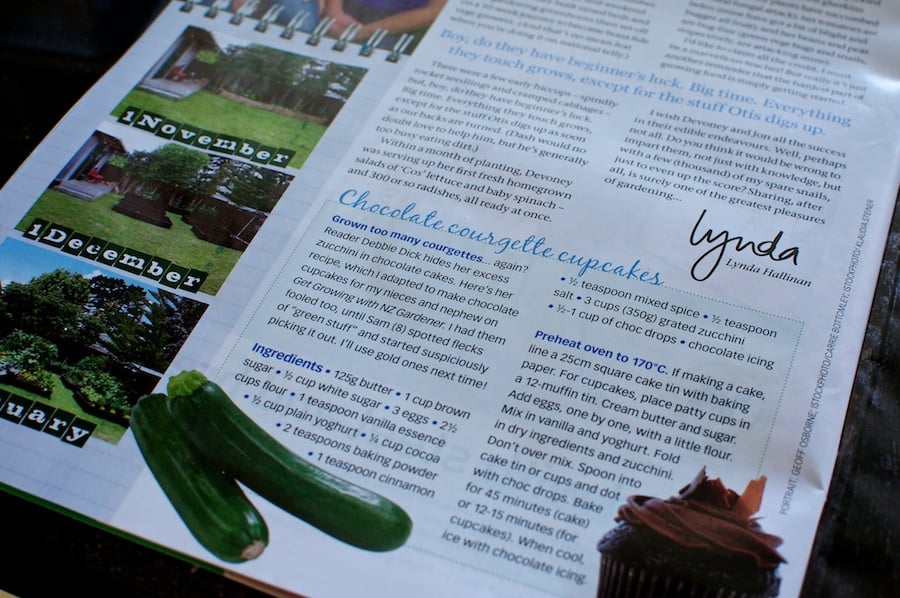 1 November
1 December
uary
growing
when you're doing it on national telly.)
Boy, do they have beginner's luck. Big time. Everything
they touch grows, except for the stuff Otis digs up.
There were a few early hiccups – spindly
rocket seedlings and cramped cabbages –
but, boy, do they have beginner's luck.
Big time. Everything they touch grows,
except for the stuff Otis digs up as soon
as our backs are turned. (Dads would no
doubt love to help him, but he's generally
too busy eating dirt.)
Within a month of planting, Devoney
was serving up her first fresh homegrown
salads of 'Cos' lettuce and baby spinach –
and 300 or so radishes, all ready at once.
another reminder that the hardest part of
growing food is simply getting started!
I wish Devoney and Jon all the success
in their edible endeavours. Well, perhaps
not all. Do you think it would be wrong to
impart them, not just with knowledge, but
with a few (thousand) of my spare snails,
just to even up the score? Sharing, after
all, is surely one of the greatest pleasures
of gardening...
lynda
Lynda Hallinan
Chocolate courgette cupcakes
Grown too many courgettes... again?
Reader Debbie Dick hides her excess
zucchini in chocolate cakes. Here's her
recipe, which I adapted to make chocolate
cupcakes for my nieces and nephew on
Get Growing with NZ Gardener. I had them
fooled too, until Sam (8) spotted flecks
of "green stuff" and started suspiciously
picking it out. I'll use gold ones next time!
Ingredients • 125g butter • 1 cup brown
sugar • ½ cup white sugar • 3 eggs • 2½
cups flour • 1 teaspoon vanilla essence
• ½ cup plain yoghurt • ¼ cup cocoa
• 2 teaspoons baking powder
• 1 teaspoon cinnamon
• ½ teaspoon mixed spice • ½ teaspoon
salt • 3 cups (350g) grated zucchini
• ½-1 cup of choc drops • chocolate icing
Preheat oven to 170°C. If making a cake,
line a 25cm square cake tin with baking
paper. For cupcakes, place patty cups in
a 12-muffin tin. Cream butter and sugar.
Add eggs, one by one, with a little flour.
Mix in vanilla and yoghurt. Fold
in dry ingredients and zucchini.
Don't over mix. Spoon into
cake tin or cups and dot
with choc drops. Bake
for 45 minutes (cake)
or 12-15 minutes (for
cupcakes). When cool,
ice with chocolate icing.
PORTRAIT: GEOFF OSBORNE; ISTOCKPHOTO/CARRIE BOTTOMLEY; ISTOCKPHOTO/ KLAUDIA STEINER